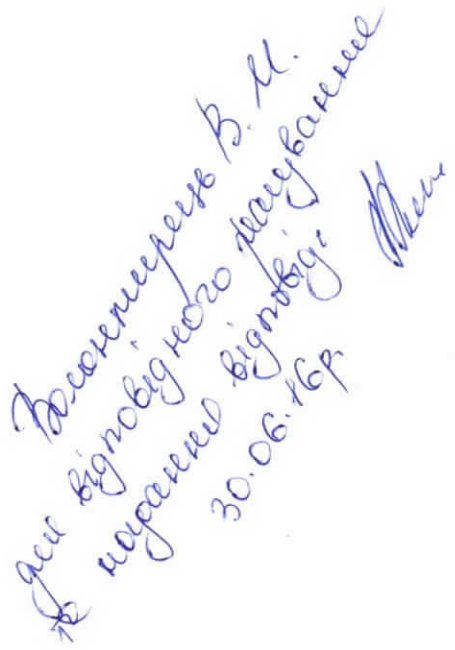 Волонтирець В. М.
для відповідного реагування
та надання відповіді
30.06.16р